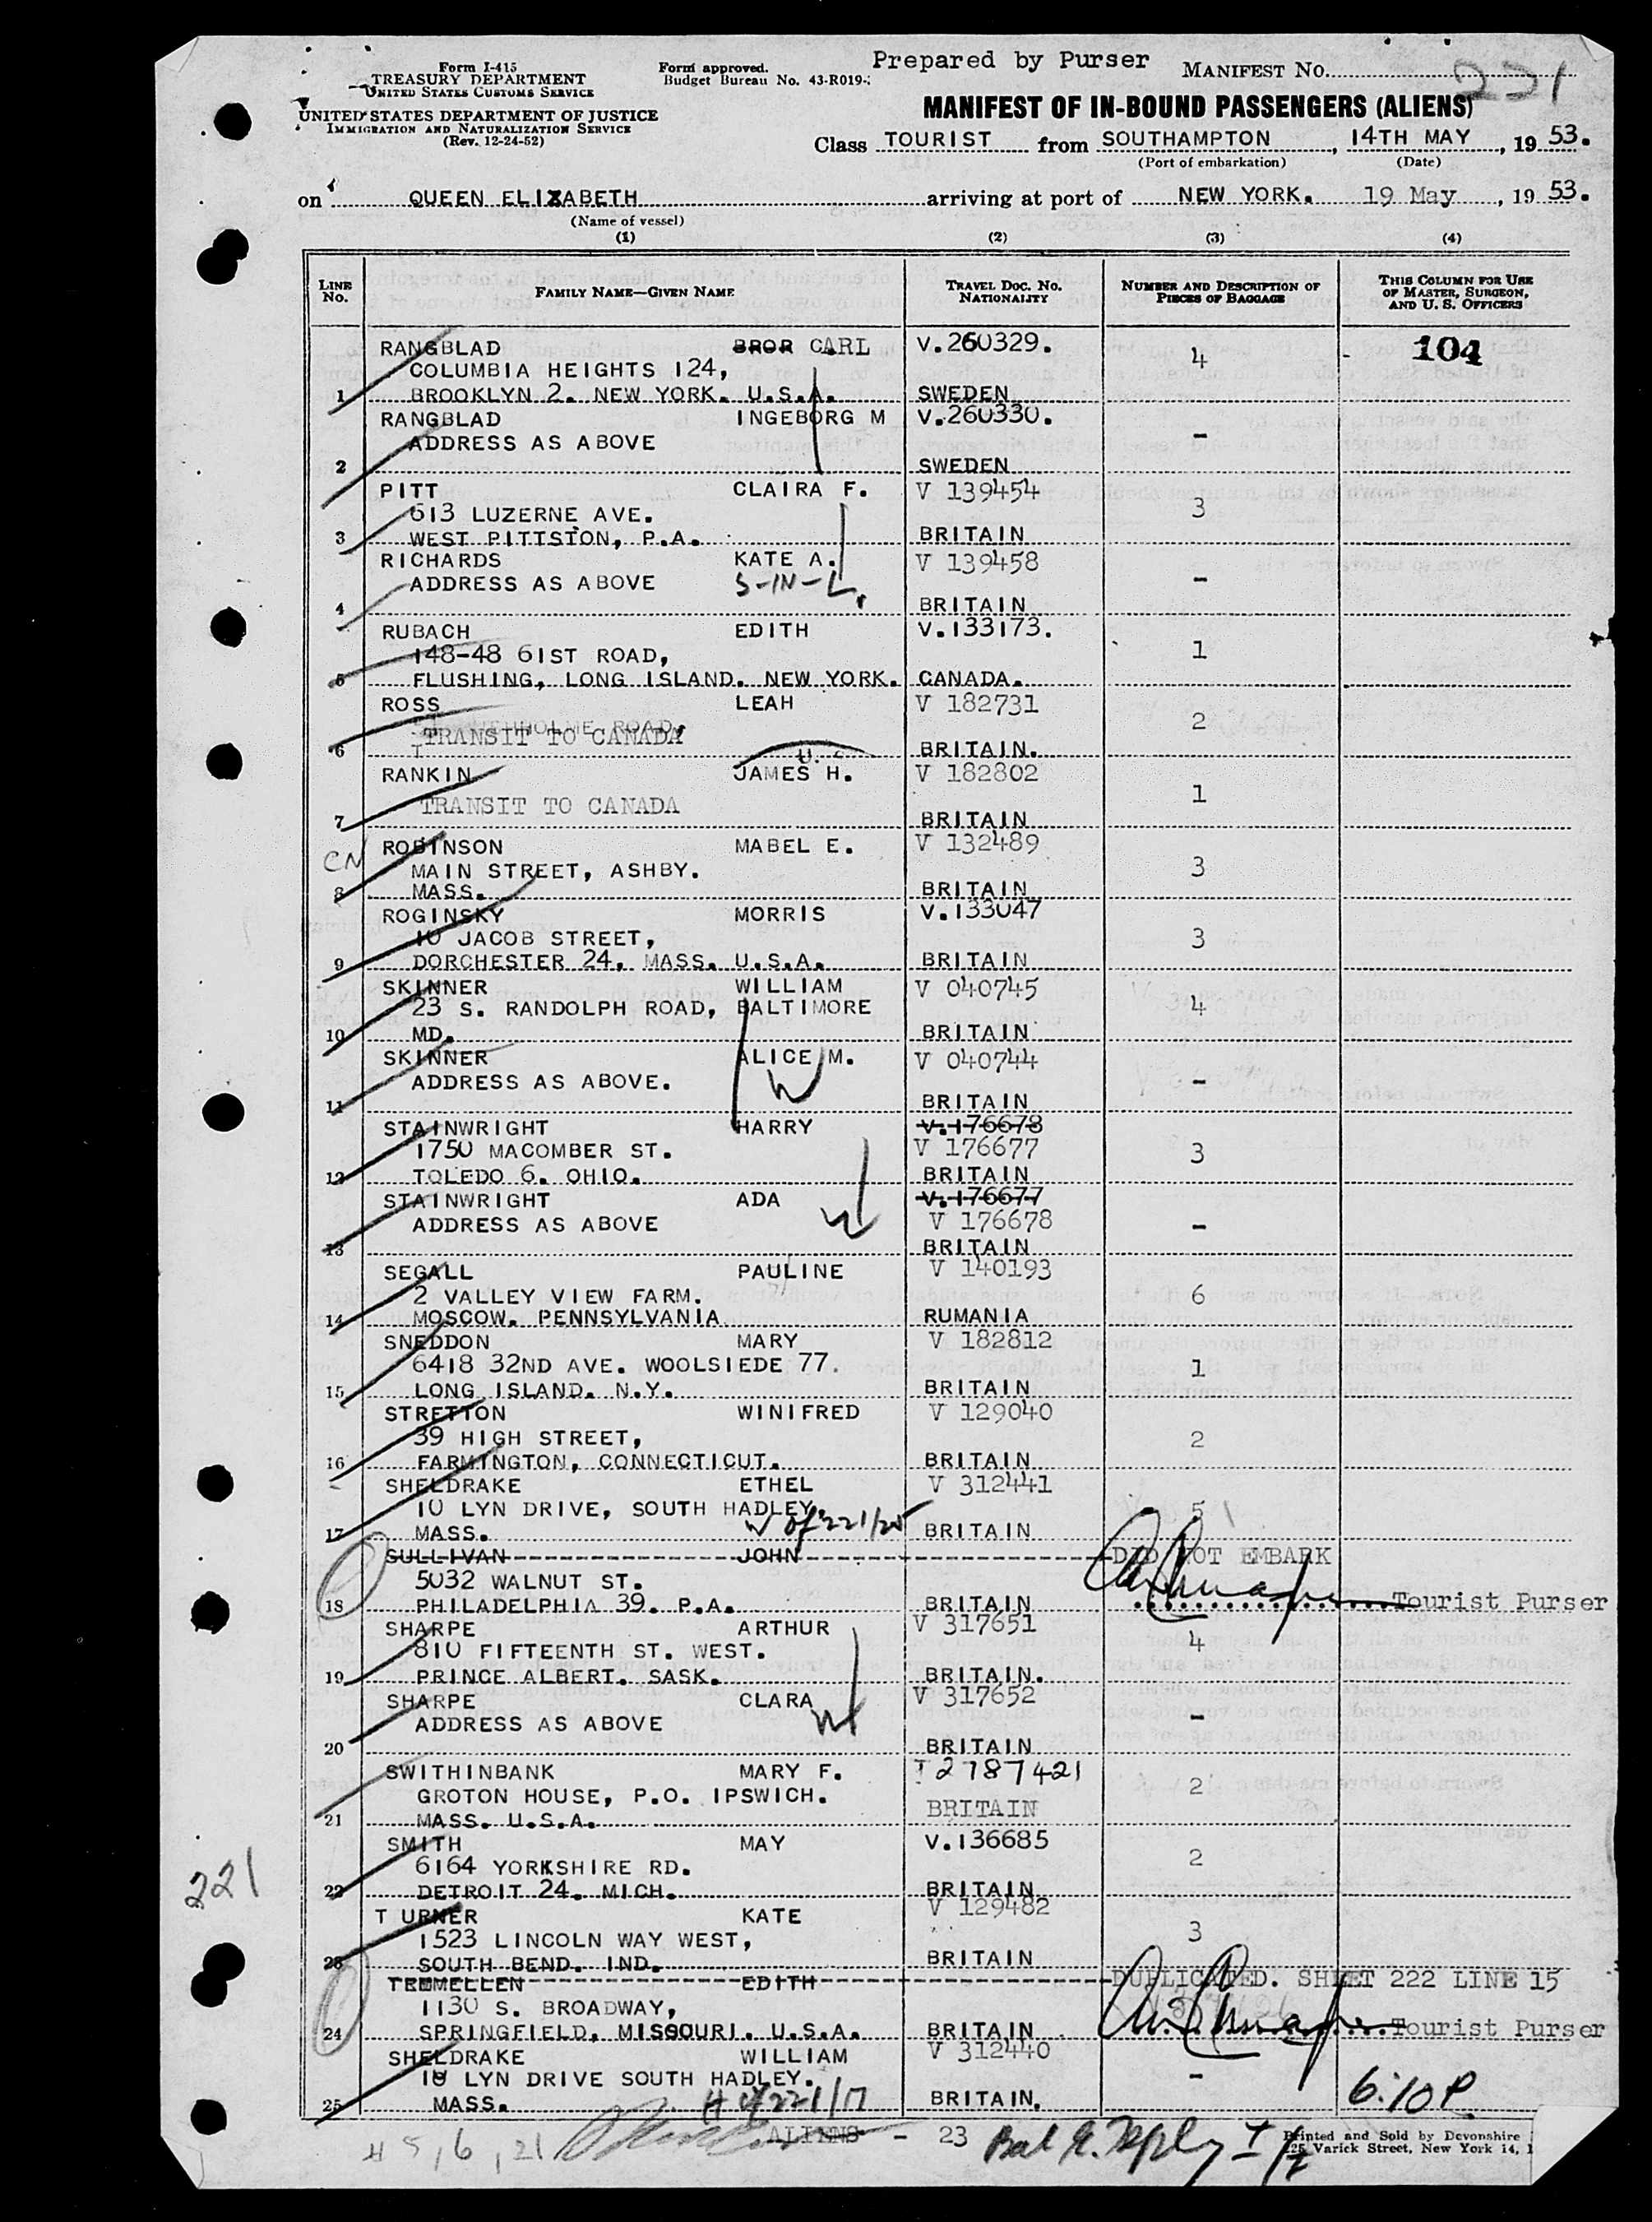 Form I-415
TREASURY DEPARTMENT
UNITED STATES CUSTOMS SERVICE
UNITED STATES DEPARTMENT OF JUSTICE
IMMIGRATION AND NATURALIZATION SERVICE
(Rev. 12-24-52)
Form approved.
Budget Bureau No. 43-R019-
Prepared by Purser
MANIFEST No. 221
MANIFEST OF IN-BOUND PASSENGERS (ALIENS)
Class TOURIST from SOUTHAMPTON, 14TH MAY, 19 53.
(Port of embarkation) (Date)
on QUEEN ELIZABETH arriving at port of NEW YORK. 19 May, 19 53.
(Name of vessel)
(1) (2) (3) (4)
LINE No. FAMILY NAME—GIVEN NAME TRAVEL DOC. NO. NATIONALITY NUMBER AND DESCRIPTION OF PIECES OF BAGGAGE THIS COLUMN FOR USE OF MASTER, SURGEON, AND U. S. OFFICERS
RANGBLAD BROR CARL V.260329. 4 104
COLUMBIA HEIGHTS 124,
1 BROOKLYN 2. NEW YORK. U.S.A. SWEDEN
RANGBLAD INGEBORG M V.260330.
ADDRESS AS ABOVE -
2 SWEDEN
PITT CLAIRA F. V 139454
613 LUZERNE AVE. 3
3 WEST PITTSTON, P.A. BRITAIN
RICHARDS KATE A. V 139458
ADDRESS AS ABOVE S-IN-L. -
4 BRITAIN
RUBACH EDITH V.133173.
148-48 61ST ROAD, 1
5 FLUSHING, LONG ISLAND. NEW YORK. CANADA.
ROSS LEAH V 182731
ROAD, 2
TRANSIT TO CANADA
6 BRITAIN.
RANKIN JAMES H. V 182802
TRANSIT TO CANADA 1
7 BRITAIN
CN ROBINSON MABEL E. V 132489
MAIN STREET, ASHBY. 3
8 MASS. BRITAIN
ROGINSKY MORRIS V.133047
10 JACOB STREET, 3
9 DORCHESTER 24, MASS. U.S.A. BRITAIN
SKINNER WILLIAM V 040745
23 S. RANDOLPH ROAD, BALTIMORE 4
10 MD. BRITAIN
SKINNER ALICE M. V 040744
ADDRESS AS ABOVE. W -
11 BRITAIN
STAINWRIGHT HARRY V.176678
1750 MACOMBER ST. V 176677 3
12 TOLEDO 6. OHIO. BRITAIN
STAINWRIGHT ADA V.176677
ADDRESS AS ABOVE W V 176678 -
13 BRITAIN
SEGALL PAULINE V 140193
2 VALLEY VIEW FARM. 6
14 MOSCOW. PENNSYLVANIA RUMANIA
SNEDDON MARY V 182812
6418 32ND AVE. WOOLSIEDE 77. 1
15 LONG ISLAND. N.Y. BRITAIN
STRETTON WINIFRED V 129040
39 HIGH STREET, 2
16 FARMINGTON, CONNECTICUT. BRITAIN
SHELDRAKE ETHEL V 312441
10 LYN DRIVE, SOUTH HADLEY, 5
17 MASS. W of 221/25 BRITAIN
SULLIVAN JOHN DID NOT EMBARK
5032 WALNUT ST.
18 PHILADELPHIA 39. P.A. BRITAIN Tourist Purser
SHARPE ARTHUR V 317651
810 FIFTEENTH ST. WEST. 4
19 PRINCE ALBERT. SASK. BRITAIN.
SHARPE CLARA V 317652
ADDRESS AS ABOVE W -
20 BRITAIN
SWITHINBANK MARY F. I 2787421
GROTON HOUSE, P.O. IPSWICH. BRITAIN 2
21 MASS. U.S.A.
SMITH MAY V.136685
6164 YORKSHIRE RD. 2
22 DETROIT 24. MICH. BRITAIN
T URNER KATE V 129482
1523 LINCOLN WAY WEST, 3
23 SOUTH BEND. IND. BRITAIN
TREMELLEN EDITH DUPLICATED. SHEET 222 LINE 15
1130 S. BROADWAY,
24 SPRINGFIELD, MISSOURI. U.S.A. BRITAIN Tourist Purser
SHELDRAKE WILLIAM V 312440
10 LYN DRIVE SOUTH HADLEY. -
25 MASS. H of 221/17 BRITAIN. 6:10 P.
221
# 5, 6, 21 ALIENS - 23
Printed and Sold by Devonshire
225 Varick Street, New York 14,